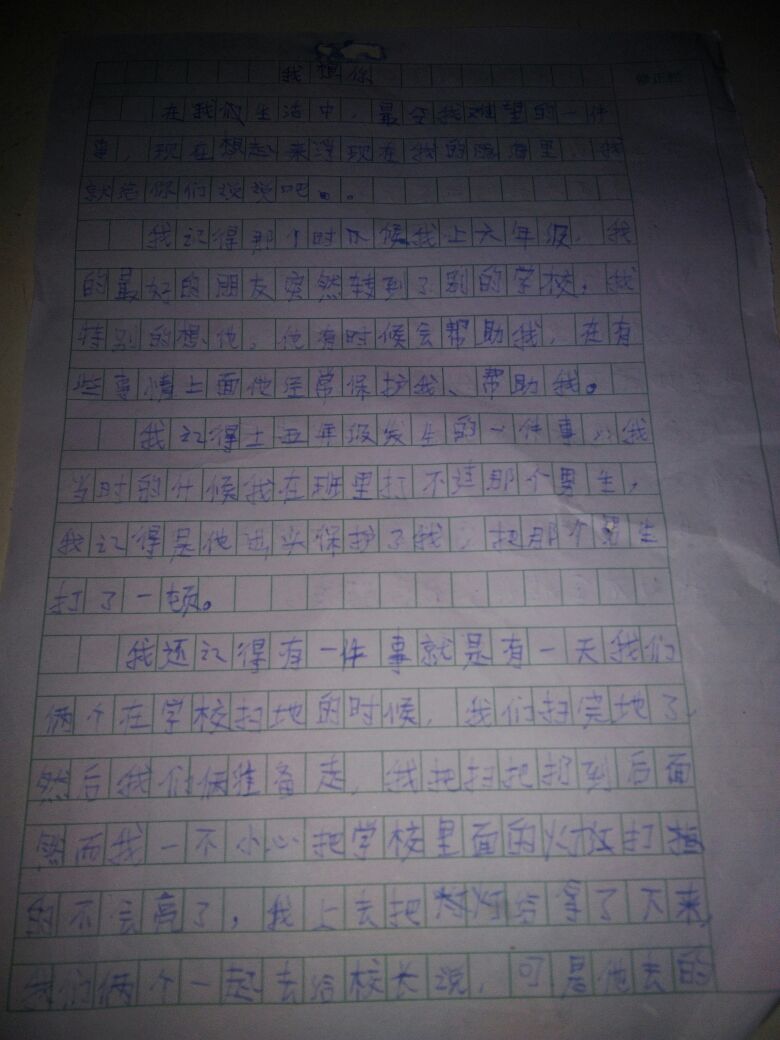 我想你
在我们生活中，最令我难望的一件
事，现在想起来浮现在我的脑海里，我
就给你们说说吧。。
我记得那个时候我上六年级，我
的最好的朋友突然转到了别的学校，我
特别的想他，他有时候会帮助我，在有
些事情上面他经常保护我、帮助我。
我记得上五年级发生的一件事，我
当时的什候我在班里打不过那个男生，
我记得是他出头保护了我，把那个男生
打了一顿。
我还记得有一件事就是有一天我们
俩个在学校扫地的时候，我们扫完地了，
然后我们俩准备走，我把扫把扔到后面
然而我一不小心把学校里面的灯打
的不会亮了，我上去把灯给拿了下来，
我们俩个一起去给校长说，可是他去的